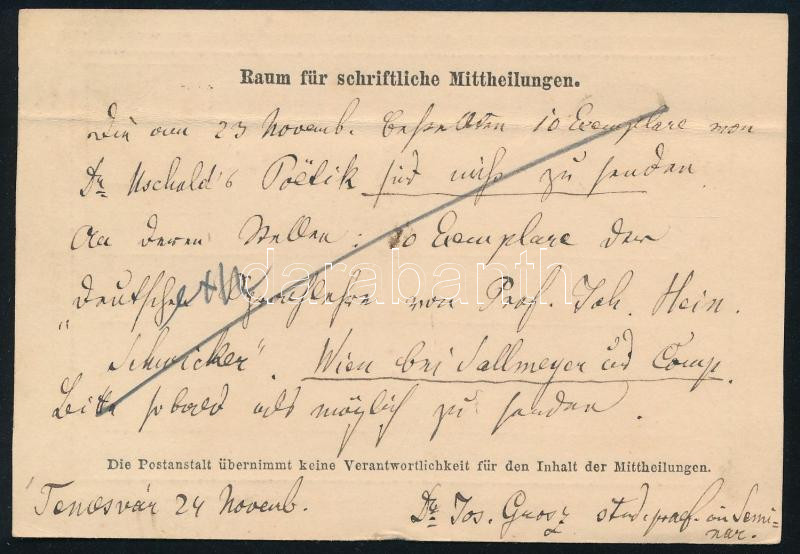 Raum für schriftliche Mittheilungen.
Die am 23 Novemb. bestellten 10 Exemplare von
Dr Uschold's Poëtik sind nicht zu senden
An deren Stellen: 10 Exemplare der
„Deutschen Sprachlehre von Prof. Joh. Hein.
Schwicker". Wien bei Sallmeyer und Comp.
Bitte sobald als möglich zu senden.
Die Postanstalt übernimmt keine Verantwortlichkeit für den Inhalt der Mittheilungen.
Temesvár 24 Novemb.
Dr Jos. Gross im Semi-
nar.
darabanth